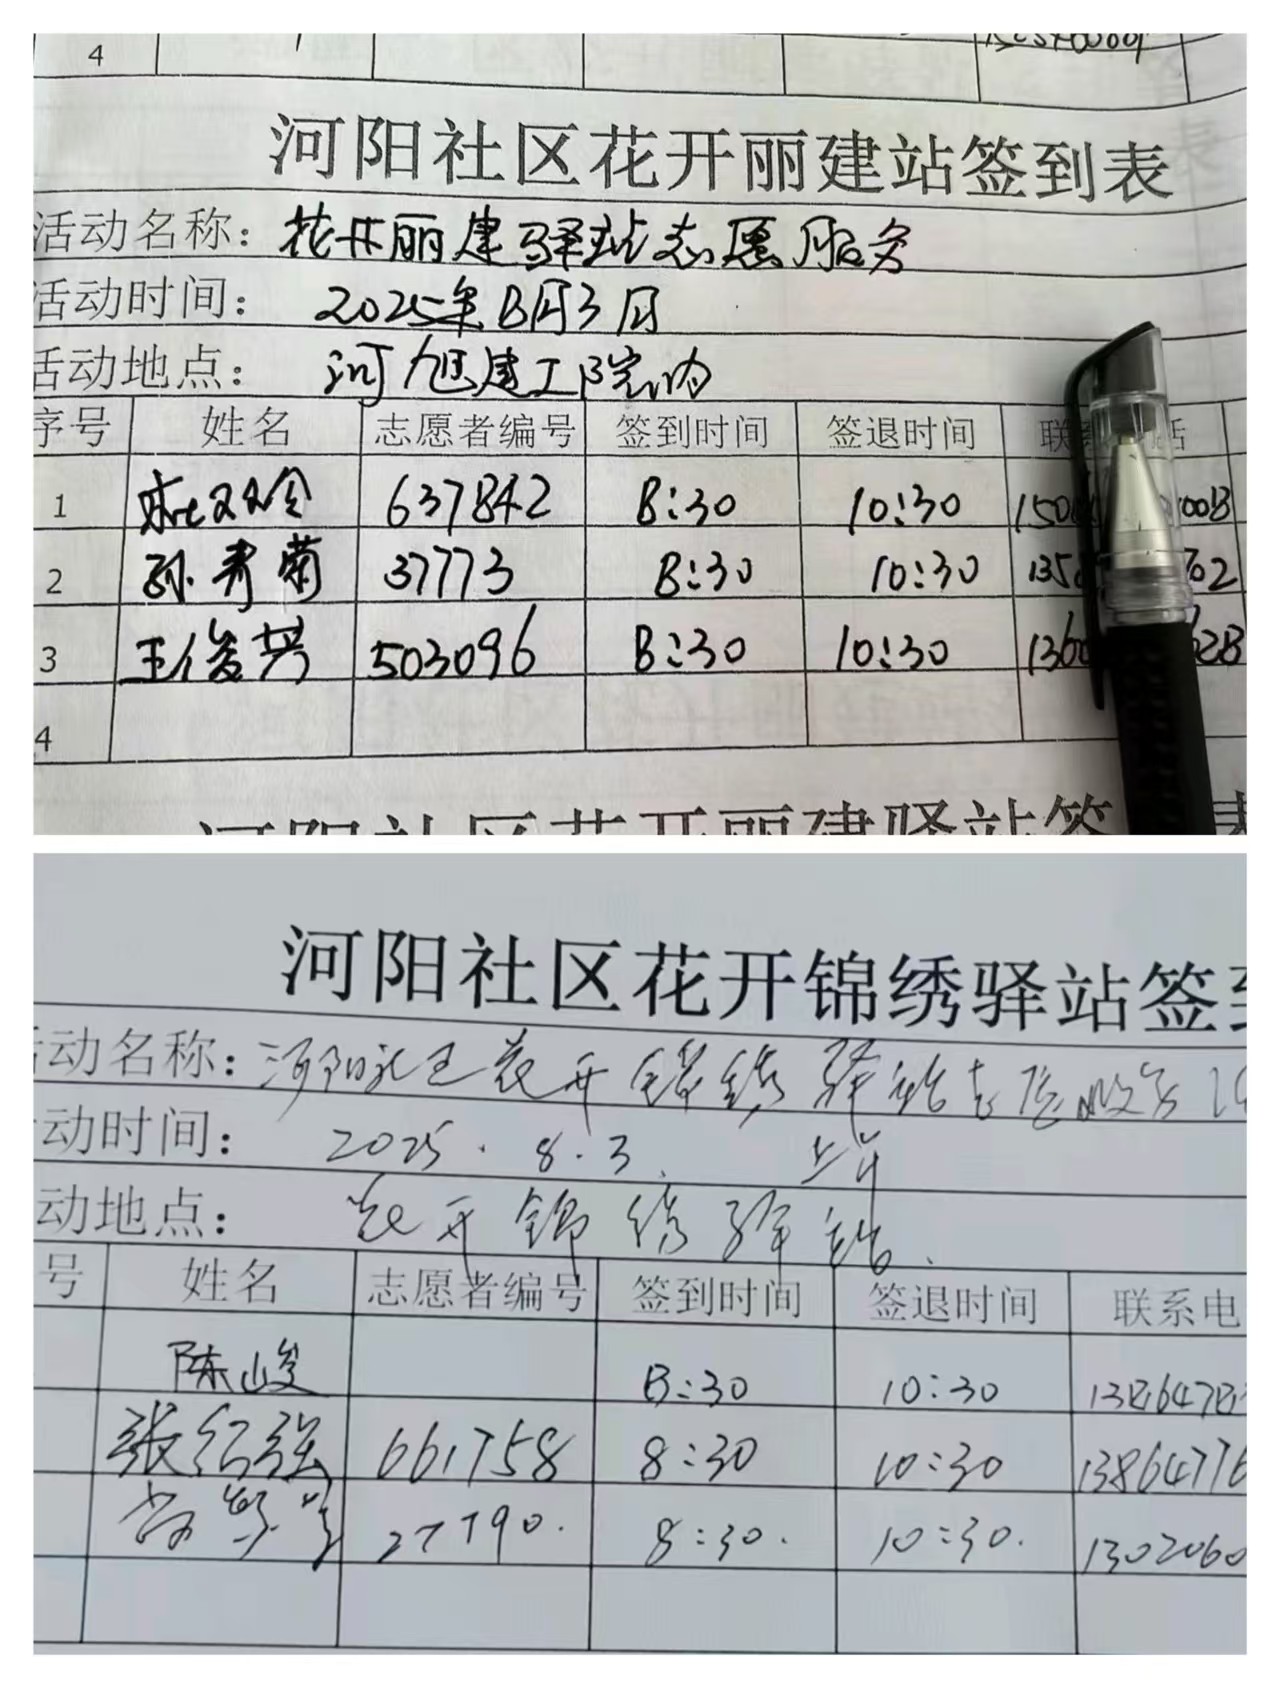 4
河阳社区花开丽建站签到表
活动名称：花开丽建驿站志愿服务
活动时间：2025年8月3日
活动地点：河旭建工院内
序号 姓名 志愿者编号 签到时间 签退时间 联
1 637842 8:30 10:30 150 008
2 孙秀菊 37773 8:30 10:30 135 702
3 王俊芳 503096 8:30 10:30 1360 628
4
河阳社区花开丽建驿站签 表
河阳社区花开锦绣驿站签到
活动名称：河阳社区花开锦绣驿站志愿服务活
动时间：2025.8.3. 上午
动地点：花开锦绣驿站.
号 姓名 志愿者编号 签到时间 签退时间 联系电
陈峻 8:30 10:30 1386478
张红强 661758 8:30 10:30 13864776
27790. 8:30. 10:30. 1302060